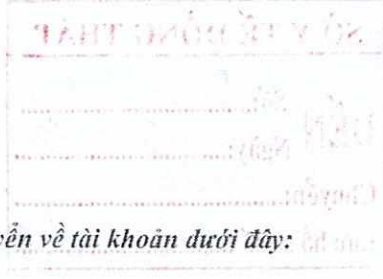 SỞ Y TẾ ĐỒNG THÁP
Số:
ĐẾN
Ngày:
Chuyển:
yển về tài khoản dưới đây: